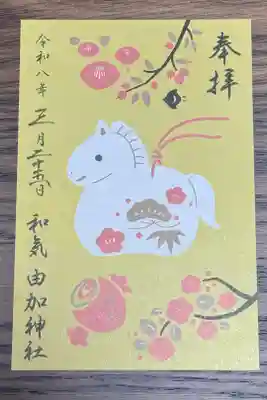 奉拝
令和八年正月二十六日
和気由加神社